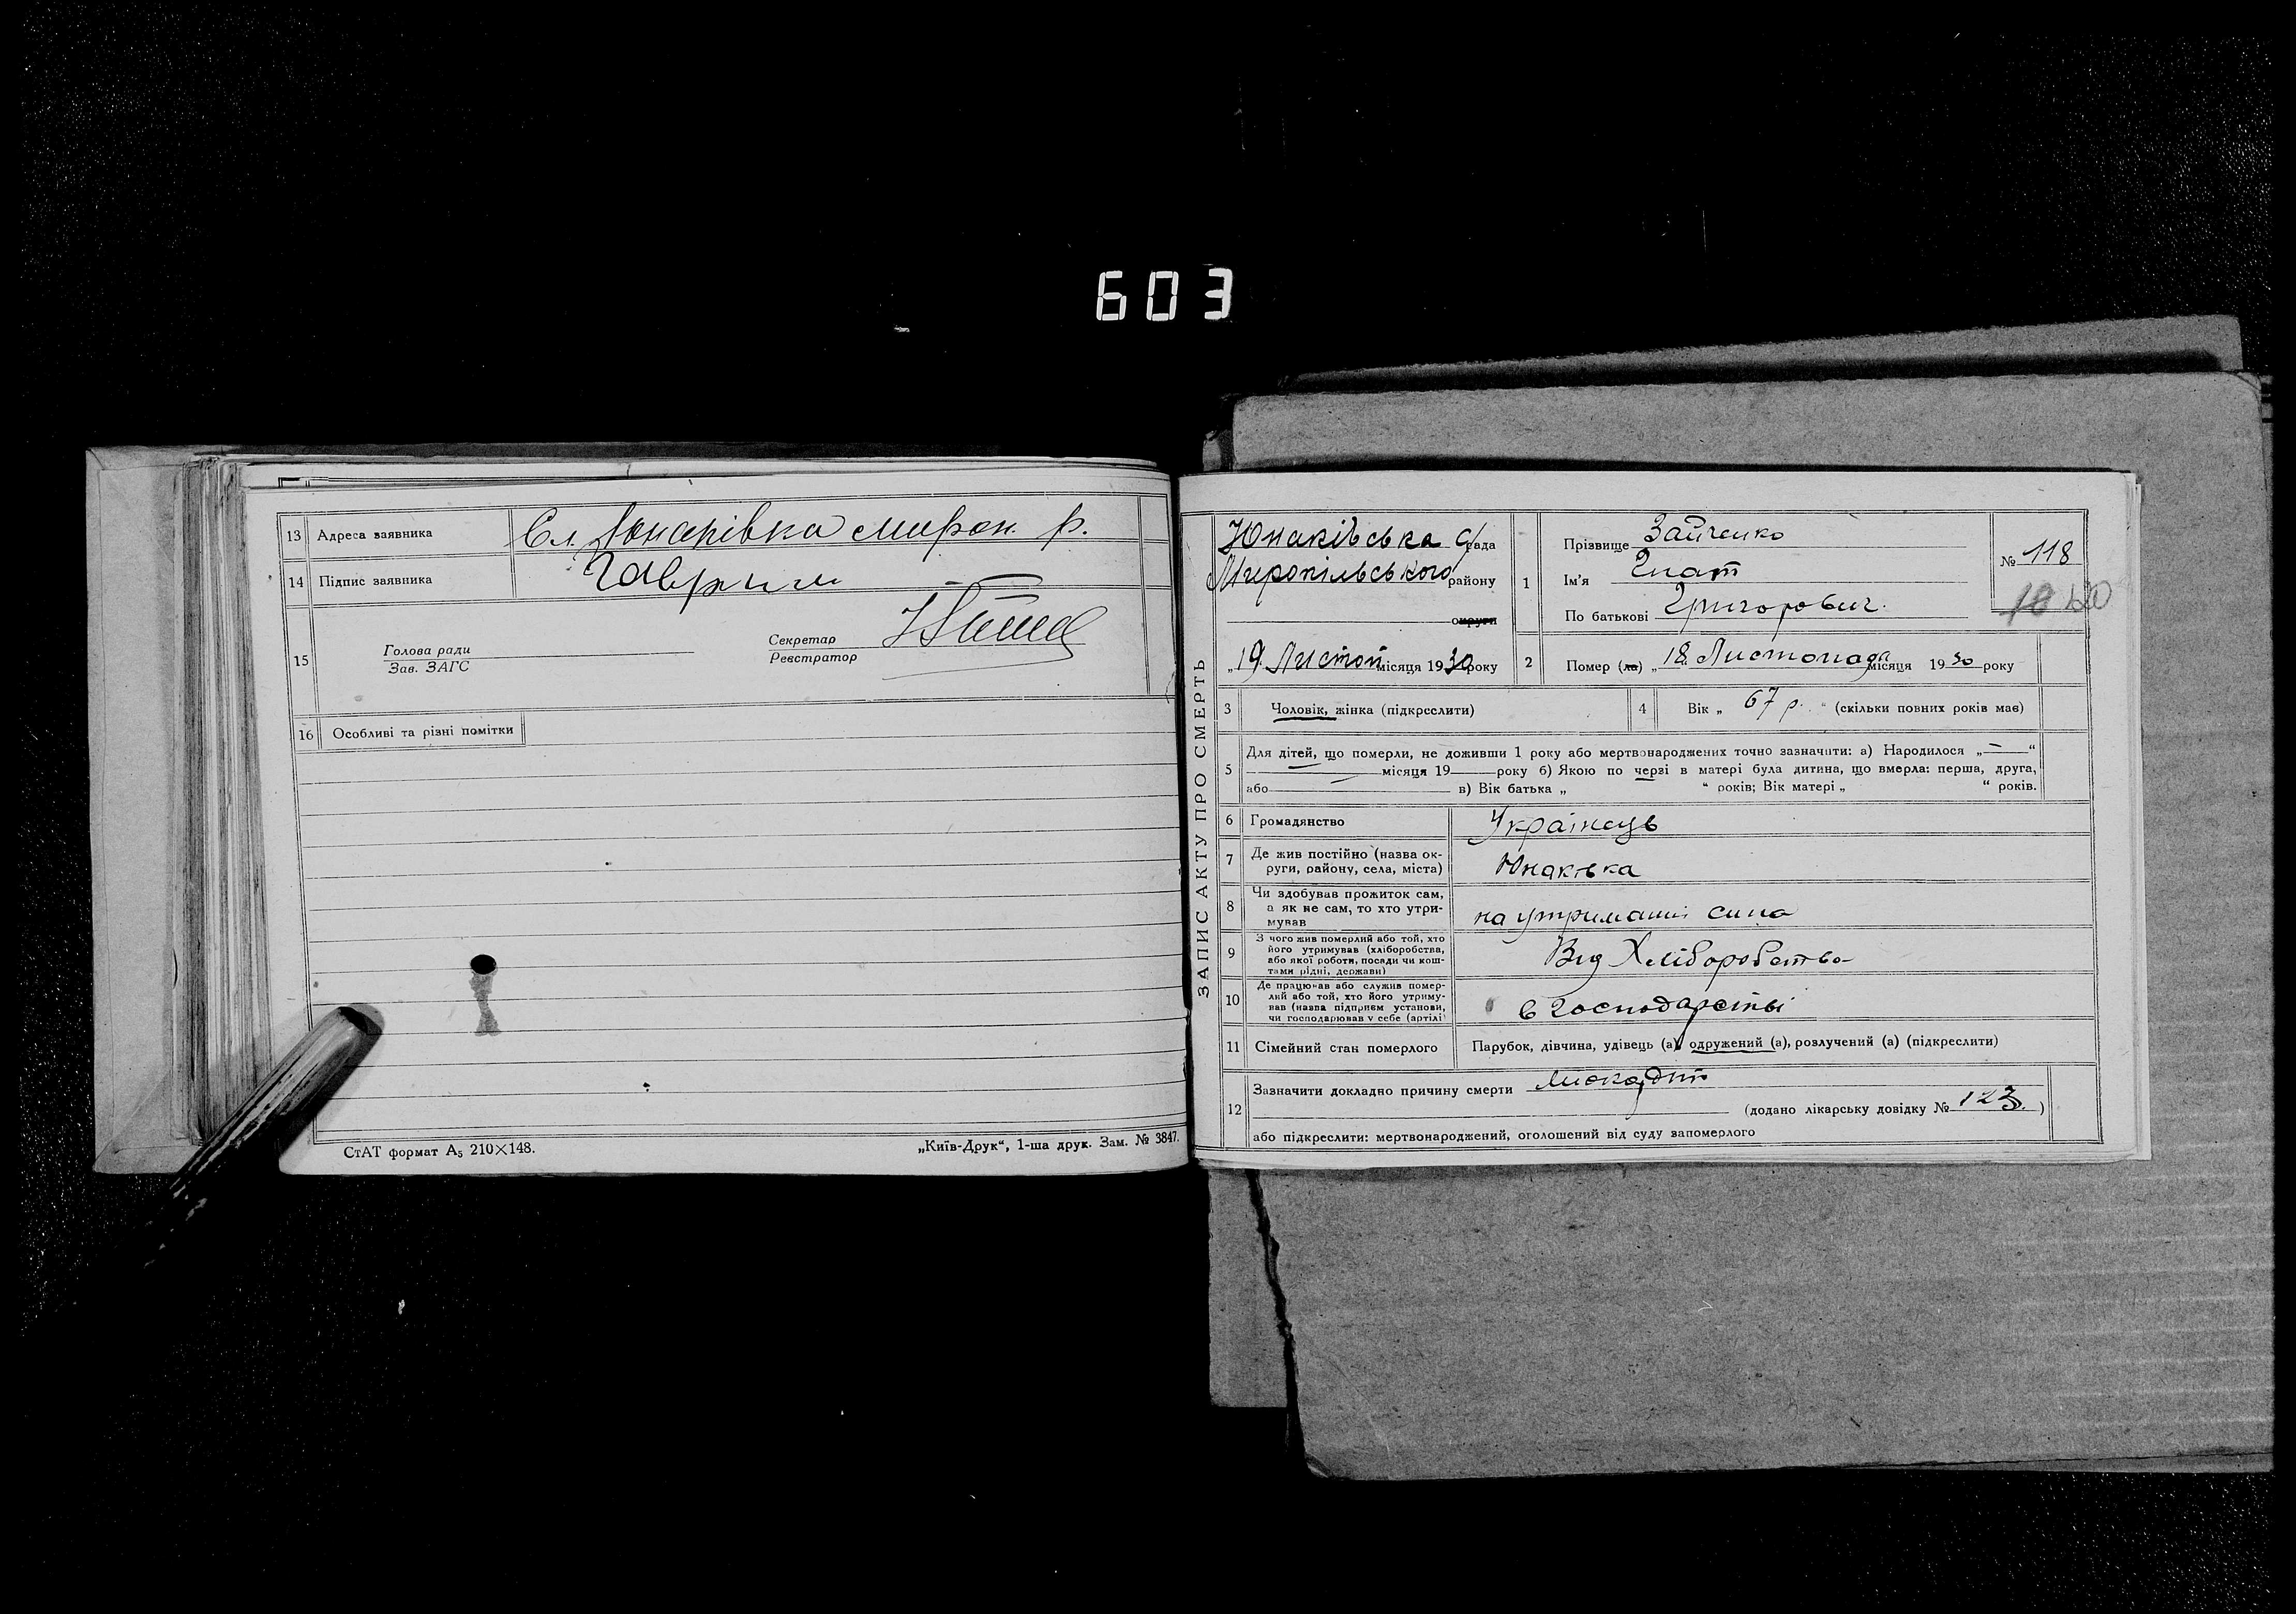 603
13 Адреса заявника Сл. Юнаківка мироп. р.
14 Підпис заявника
15 Голова ради
Зав. ЗАГС
Секретар
Реєстратор
16 Особливі та різні помітки
СтАТ формат А₅ 210×148.
„Київ-Друк“, 1-ша друк. Зам. № 3847.
ЗАПИС АКТУ ПРО СМЕРТЬ
Юнаківська с/рада
Миропільського району
округи
„19. Листоп місяця 1930 року
1 Прізвище Зайченко
Ім'я Гнат
По батькові Григорович.
№ 118
2 Помер (ла) „18. Листопада місяця 1930 року
3 Чоловік, жінка (підкреслити)
4 Вік „ 67 р. “ (скільки повних років має)
5 Для дітей, що померли, не доживши 1 року або мертвонароджених точно зазначити: а) Народилося „—“
місяця 19 року б) Якою по черзі в матері була дитина, що вмерла: перша, друга,
або в) Вік батька „ “ років; Вік матері „ “ років.
6 Громадянство Українець
7 Де жив постійно (назва ок-
руги, району, села, міста) Юнаківка
8 Чи здобував прожиток сам,
а як не сам, то хто утри-
мував на утриманні сина
9 З чого жив померлий або той, хто
його утримував (хліборобства,
або якої роботи, посади чи кош-
тами рідні, держави) Від Хліборобства
10 Де працював або служив помер-
лий або той, хто його утриму-
вав (назва підприєм установи,
чи господарював у себе (артілі) в господарстві
11 Сімейний стан померлого Парубок, дівчина, удівець (а), одружений (а), розлучений (а) (підкреслити)
12 Зазначити докладно причину смерти
(додано лікарську довідку № 123. )
або підкреслити: мертвонароджений, оголошений від суду запомерлого